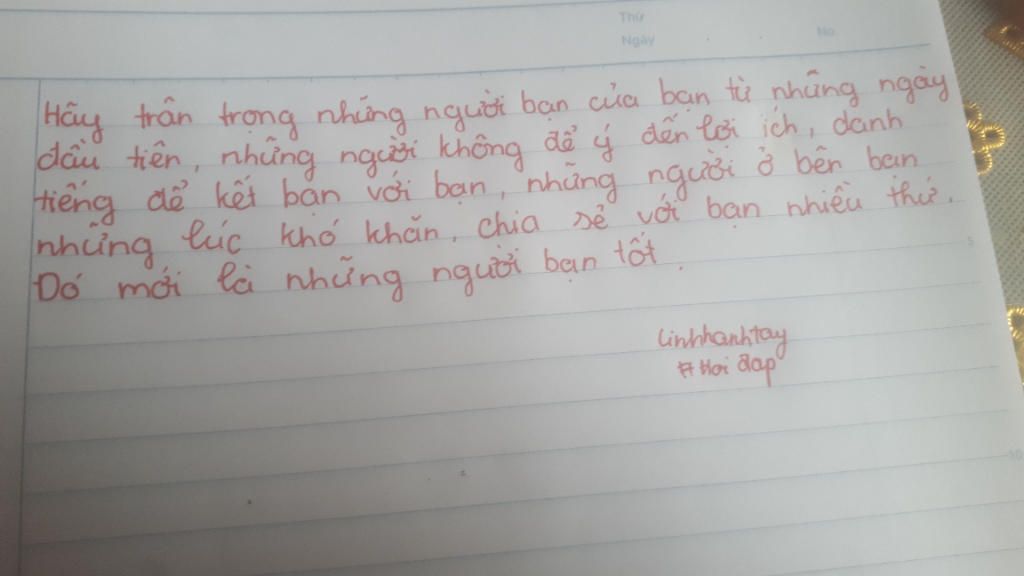 Thứ
Ngày
No.
Hãy trân trọng những người bạn của bạn từ những ngày
đầu tiên, những người không để ý đến lợi ích, danh
tiếng để kết bạn với bạn, những người ở bên bạn
những lúc khó khăn, chia sẻ với bạn nhiều thứ.
Đó mới là những người bạn tốt.
linhhanhtay
#Hoi đap
5
10